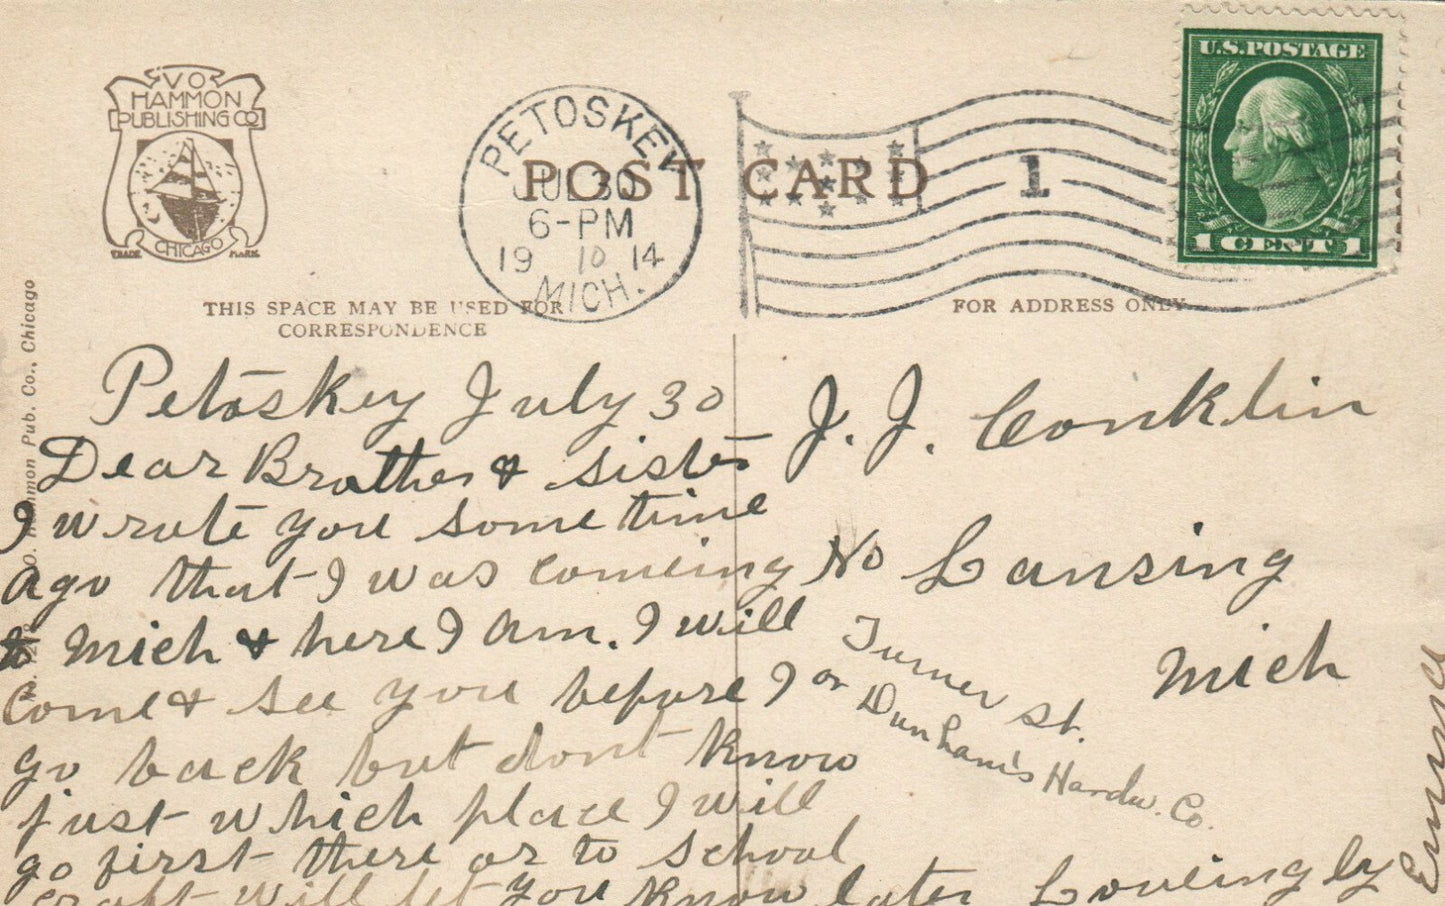 V O
HAMMON
PUBLISHING CO
CHICAGO
TRADE MARK
PETOSKEY
JUL 30
6-PM
19 10 14
MICH.
POST CARD
1
U.S. POSTAGE
1 CENT 1
THIS SPACE MAY BE USED FOR
CORRESPONDENCE
FOR ADDRESS ONLY
Hammon Pub. Co., Chicago
Petoskey July 30
Dear Brother & sister
I wrote you some time
ago that I was comeing
to Mich & here I am. I will
Come & see you before I
go back but dont know
just which place I will
go first there or to school
craft will let you know later Loveingly
Emma
J. J. Conklin
No Lansing
Mich
Turner St.
or Dunham's Hardw. Co.